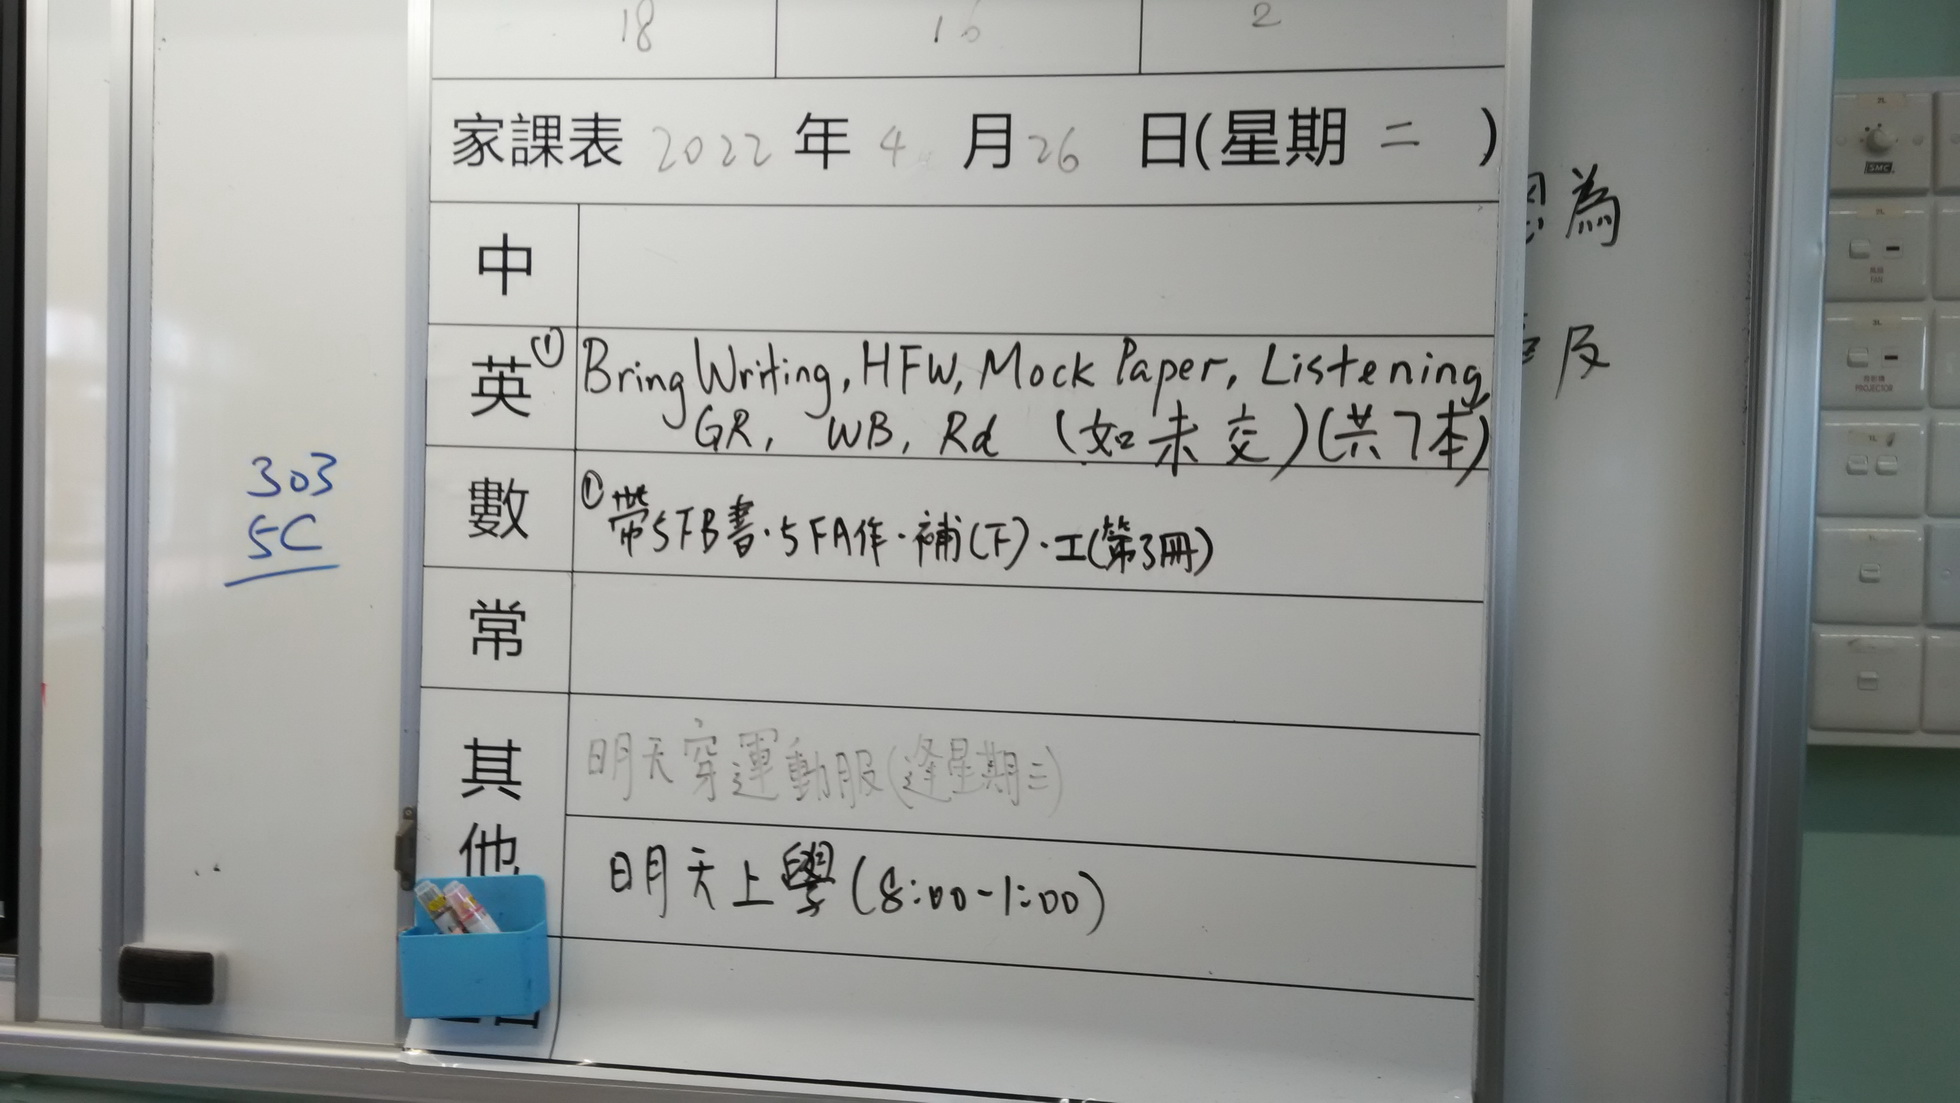 18 16 2
家課表 2022 年 4 月 26 日(星期 二 )
中
英 ① Bring Writing, HFW, Mock Paper, Listening,
GR, WB, Rd (如未交)(共7本)
數 ① 帶5FB書·5FA作·補(下)·工(第3冊)
常
其他
明天穿運動服(逢星期二)
明天上學(8:00-1:00)
303
5C
為
及
SMC
FAN
PROJECTOR